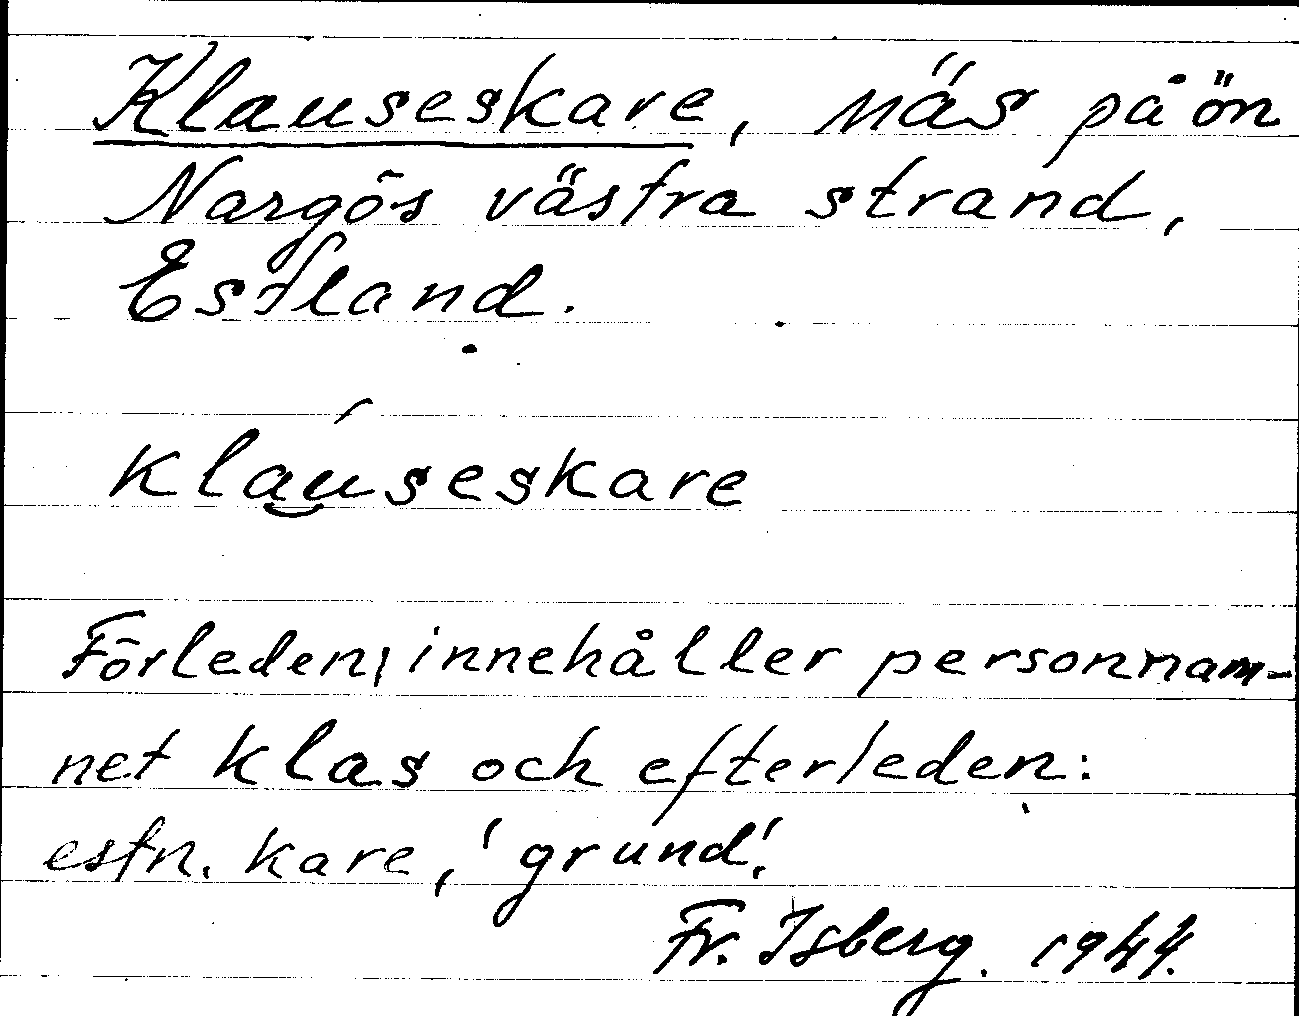 Klauseskare, näs på ön
Nargös västra strand,
Estland.
kláuseskare
Förleden, innehåller personnam-
net klas och efterleden:
estn. kare, 'grund'.
Fr. Isberg. 1944.